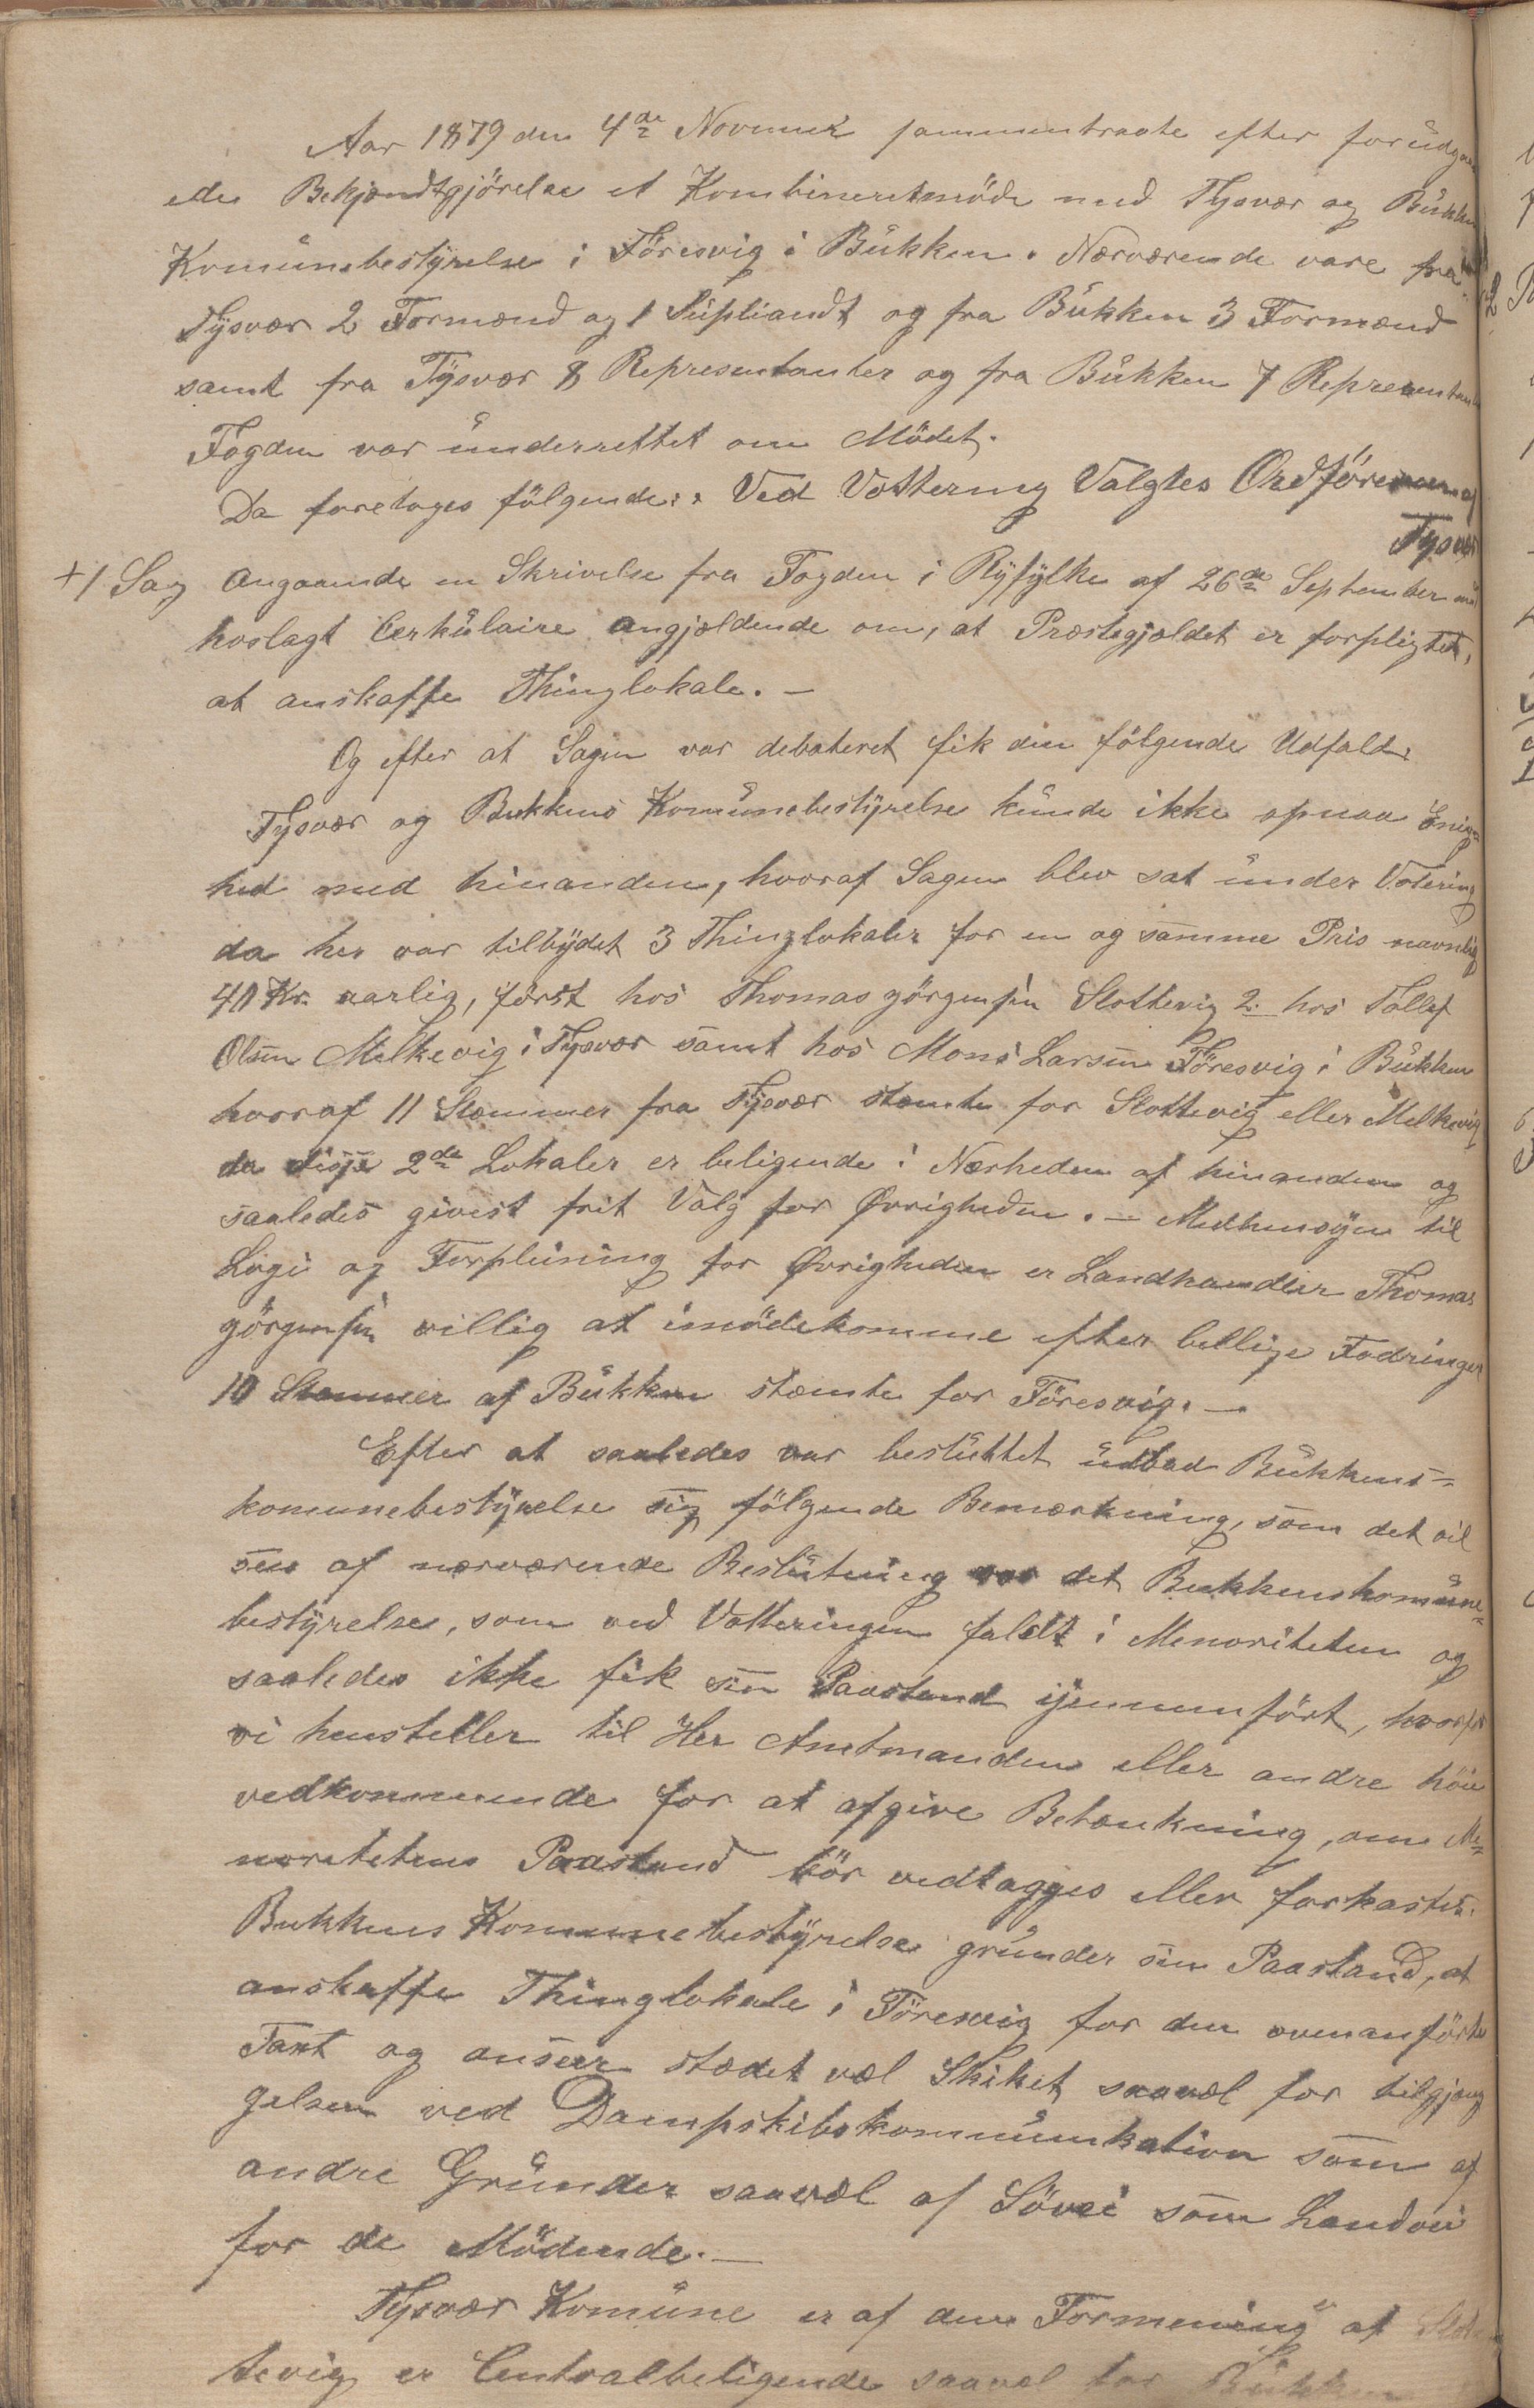 Aar 1879 den 4de Novemer sammentraate efter forudgaa
ede Bekjendtgjörelse et Kombineretmöde med Tysvær og Bukken
Komunebestyrelse i Föresvig i Bukken. Nærværende vare fra
Tysvær 2 Formænd og 1 Supliandt og fra Bukken 3 Formænd
samt fra Tysvær 8 Representanter og fra Bukken 7 Representan
Fogden var underrettet om Mödet.
Da foretoges fölgende: Ved Vottering Valgtes Ordföreren af
Tysvær
+1 Sag Angaaende en Skrivelse fra Fogden i Ryfylke af 26de September
hoslagt Cerkulaire angjældende om, at Præstegjældet er forpligtet,
at anskaffe Thinglokale. —
Og efter at Sagen var debateret fik den fölgende Udfald:
Tysvær og Bukkens Komunebestyrelse kunde ikke opnaa Enig-
hed med hinanden, hvoraf Sagen blev sat under Votering
da her var tilbydet 3 Thinglokaler for en og samme Pris navnlig
40 Kr. aarlig, först hos Thomas Görgensen Slottevig 2. hos Tollef
Olsen Melkevig i Tysvær samt hos Mons Larsen Föresvig i Bukken
hvoraf 11 Stæmmer fra Tysvær stæmte for Slottevig eller Melkevig
da disse 2de Lokaler er beligende i Nærheden af hinanden og
saaledes givest frit Valg for Øvrigheden. — Medhensyn til
Logi og Forpleining for Øvrigheden er Landhandler Thomas
Görgensen villig at imödekomme efter bellige Fodringer
10 Stæmmer af Bukken stæmte for Föresvig. —
Efter at saaledes var besluttet udbad Bukkens-
komunebestyrelse sig fölgende Bemærkning, som det vil
sees af nærværende Beslutning var det Bukkenskomune-
bestyrelse, som ved Votteringen faldt i Menoriteten og
saaledes ikke fik sin Paastand ijennemfört, hvorfor
vi henstiller til Her Amtmanden eller andre höie
vedkommende for at afgive Betænkning, om Me-
noritetens Paastand bör vedtagges eller forkastes.
Bukkens Komunebestyrelse grunder sin Paastand, at
anskaffe Thinglokale i Föresvig for den ovenanförte
Taxt og anseer stædet væl Skiket saavæl for tilgjæng
gelsen ved Dampskibskommunikation som af
andre Grunder saavæl af Sövei som Landvei
for de Mödende. —
Tysvær Komune er af den Formening at Slot
tevig er Centralbeligende saavæl for Bukken